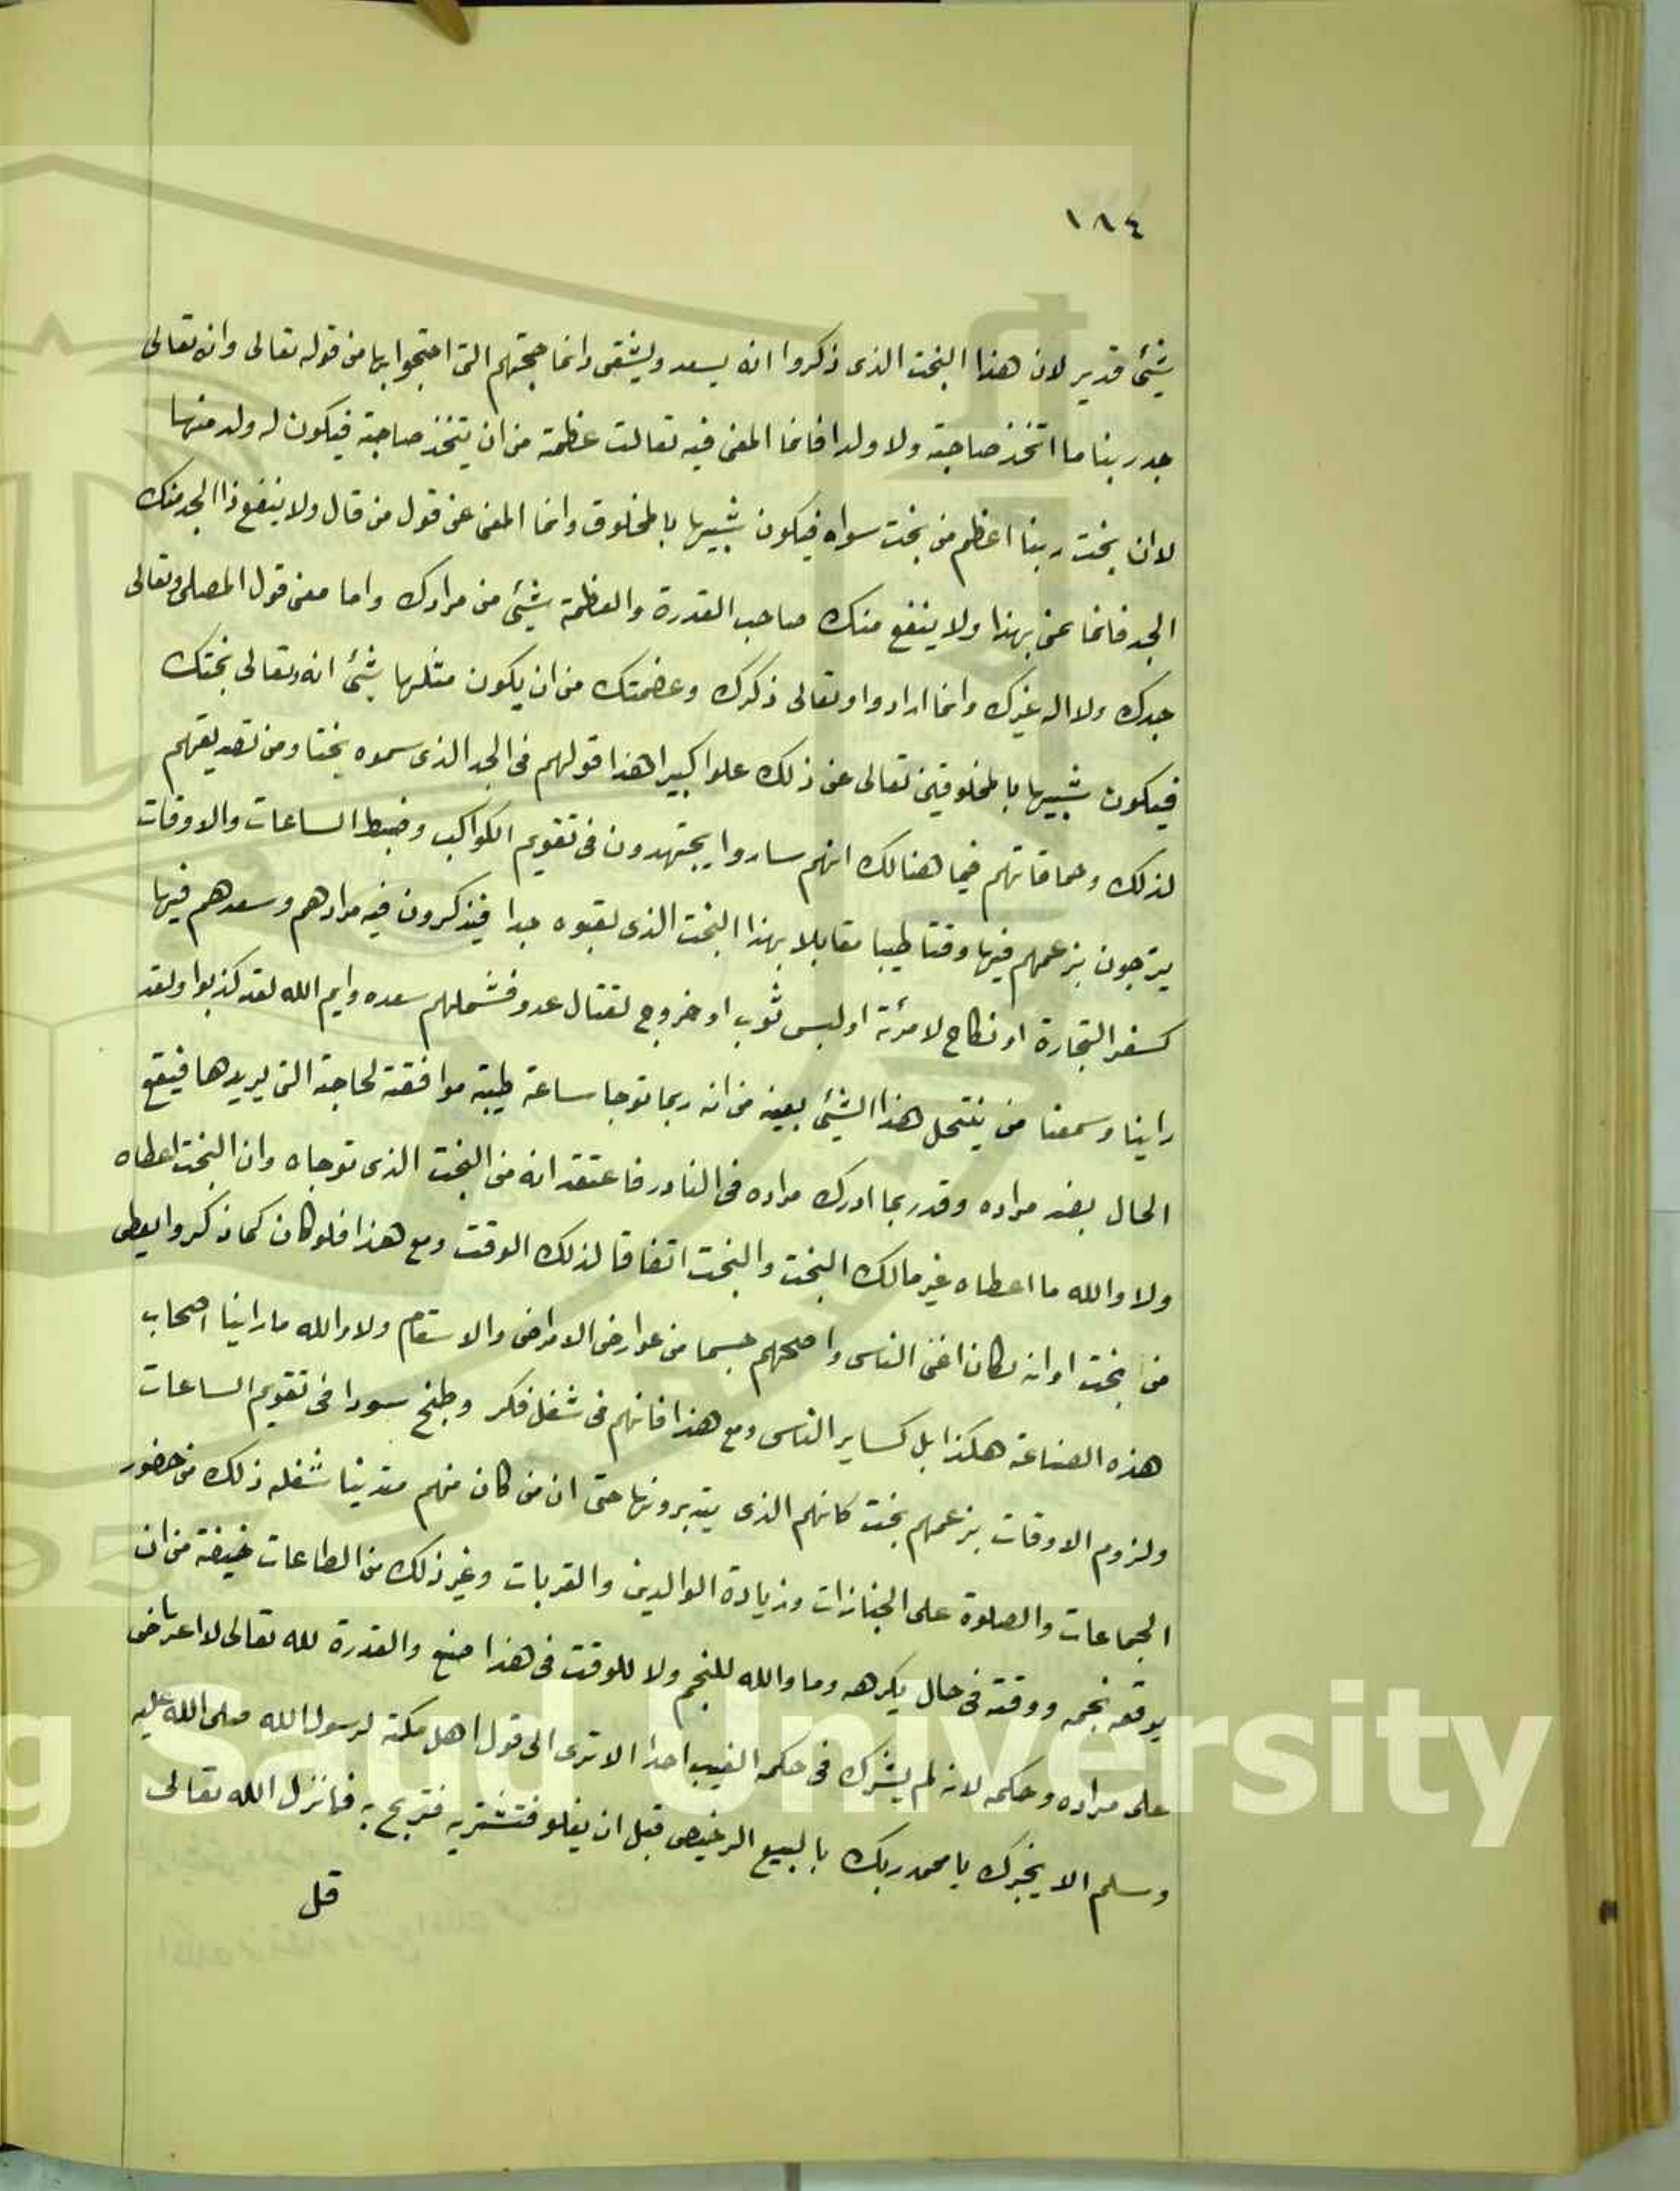 ١٨٤
شيئ قدير لان هذا البخت الذى ذكروا انه يسعد ويشقى وانما حجتهم التى احتجوا بها من قوله تعالى وانه تعالى
جد ربنا ما اتخذ صاحبة ولا ولدا فانما المعنى فيه تعالت عظمة من ان يتخذ صاحبة فيكون له ولد منها
لا ان بخت ربنا اعظم من بخت سواه فيكون شبيها بالمخلوق وانما المعنى عن قول من قال ولا ينفع ذا الجد منك
الجد فانما عنى بهذا ولا ينفع منك صاحب القدرة والعظمة شيئ من مرادك واما معنى قول المصلى وتعالى
جدك ولا اله غيرك وانما ارادوا وتعالى ذكرك وعضمتك من ان يكون مثلها شيئ انه وتعالى بختك
فيكون شبيها بالمخلوقين تعالى عن ذلك علوا كبيرا هذا قولهم فى الجد الذى سموه بختا ومن تصديقهم
لذلك وحماقاتهم فيما هنالك انهم ساروا يجتهدون فى تقويم الكواكب وضبط الساعات والاوقات
يترجون بزعمهم فيها وقتا طيبا مقابلا بهذا البخت الذى لقبوه جدا فيذكرون فيه مرادهم وسعدهم فيها
كسفر التجارة او نكاح لامرئة او لبس ثوب او خروج لقتال عدو فشملهم سعده وايم الله لقد كذبوا ولقد
راينا وسمعنا من ينتحل هذا الشيئ بعينه من انه ربما توجا ساعة طيبة موافقة لحاجة التى يريدها فيقع
الحال بضد مراده وقد ربما ادرك مراده فى النادر فاعتقد انه من البخت الذى توجاه وان البخت اعطاه
ولا والله ما اعطاه غير مالك البخت والبخت اتفاقا لذلك الوقت ومع هذا فلو كان كما ذكروا يعطى
من بخت اوانه لكان اغنى الناس واصحهم جسما من عوارض الامراض والاسقام ولا والله ما راينا اصحاب
هذه الصناعة هكذا بل كساير الناس ومع هذا فانهم فى شغل فكر وطبخ سودا فى تقويم الساعات
ولزوم الاوقات بزعمهم بخت كانهم الذى يتدبرونها حتى ان من كان منهم متدينا شغله ذلك من حضور
الجماعات والصلوة على الجنازات وزيادة الوالدين والقربات وغير ذلك من الطاعات خيفة من ان
يوقعه نجمه ووقته فى حال يكرهه وما والله للنجم ولا للوقت فى هذا صنع والقدرة لله تعالى لا اعتراض
على مراده وحكمه لانه لم يشرك فى حكمه الغيب احدا الا ترى الى قول اهل مكة لرسول الله صلى الله عليه
وسلم الا يخبرك يا محمد ربك بالبيع الرخيص قبل ان يغلو فتشتريه فتربح به فانزل الله تعالى
قل
King Saud University